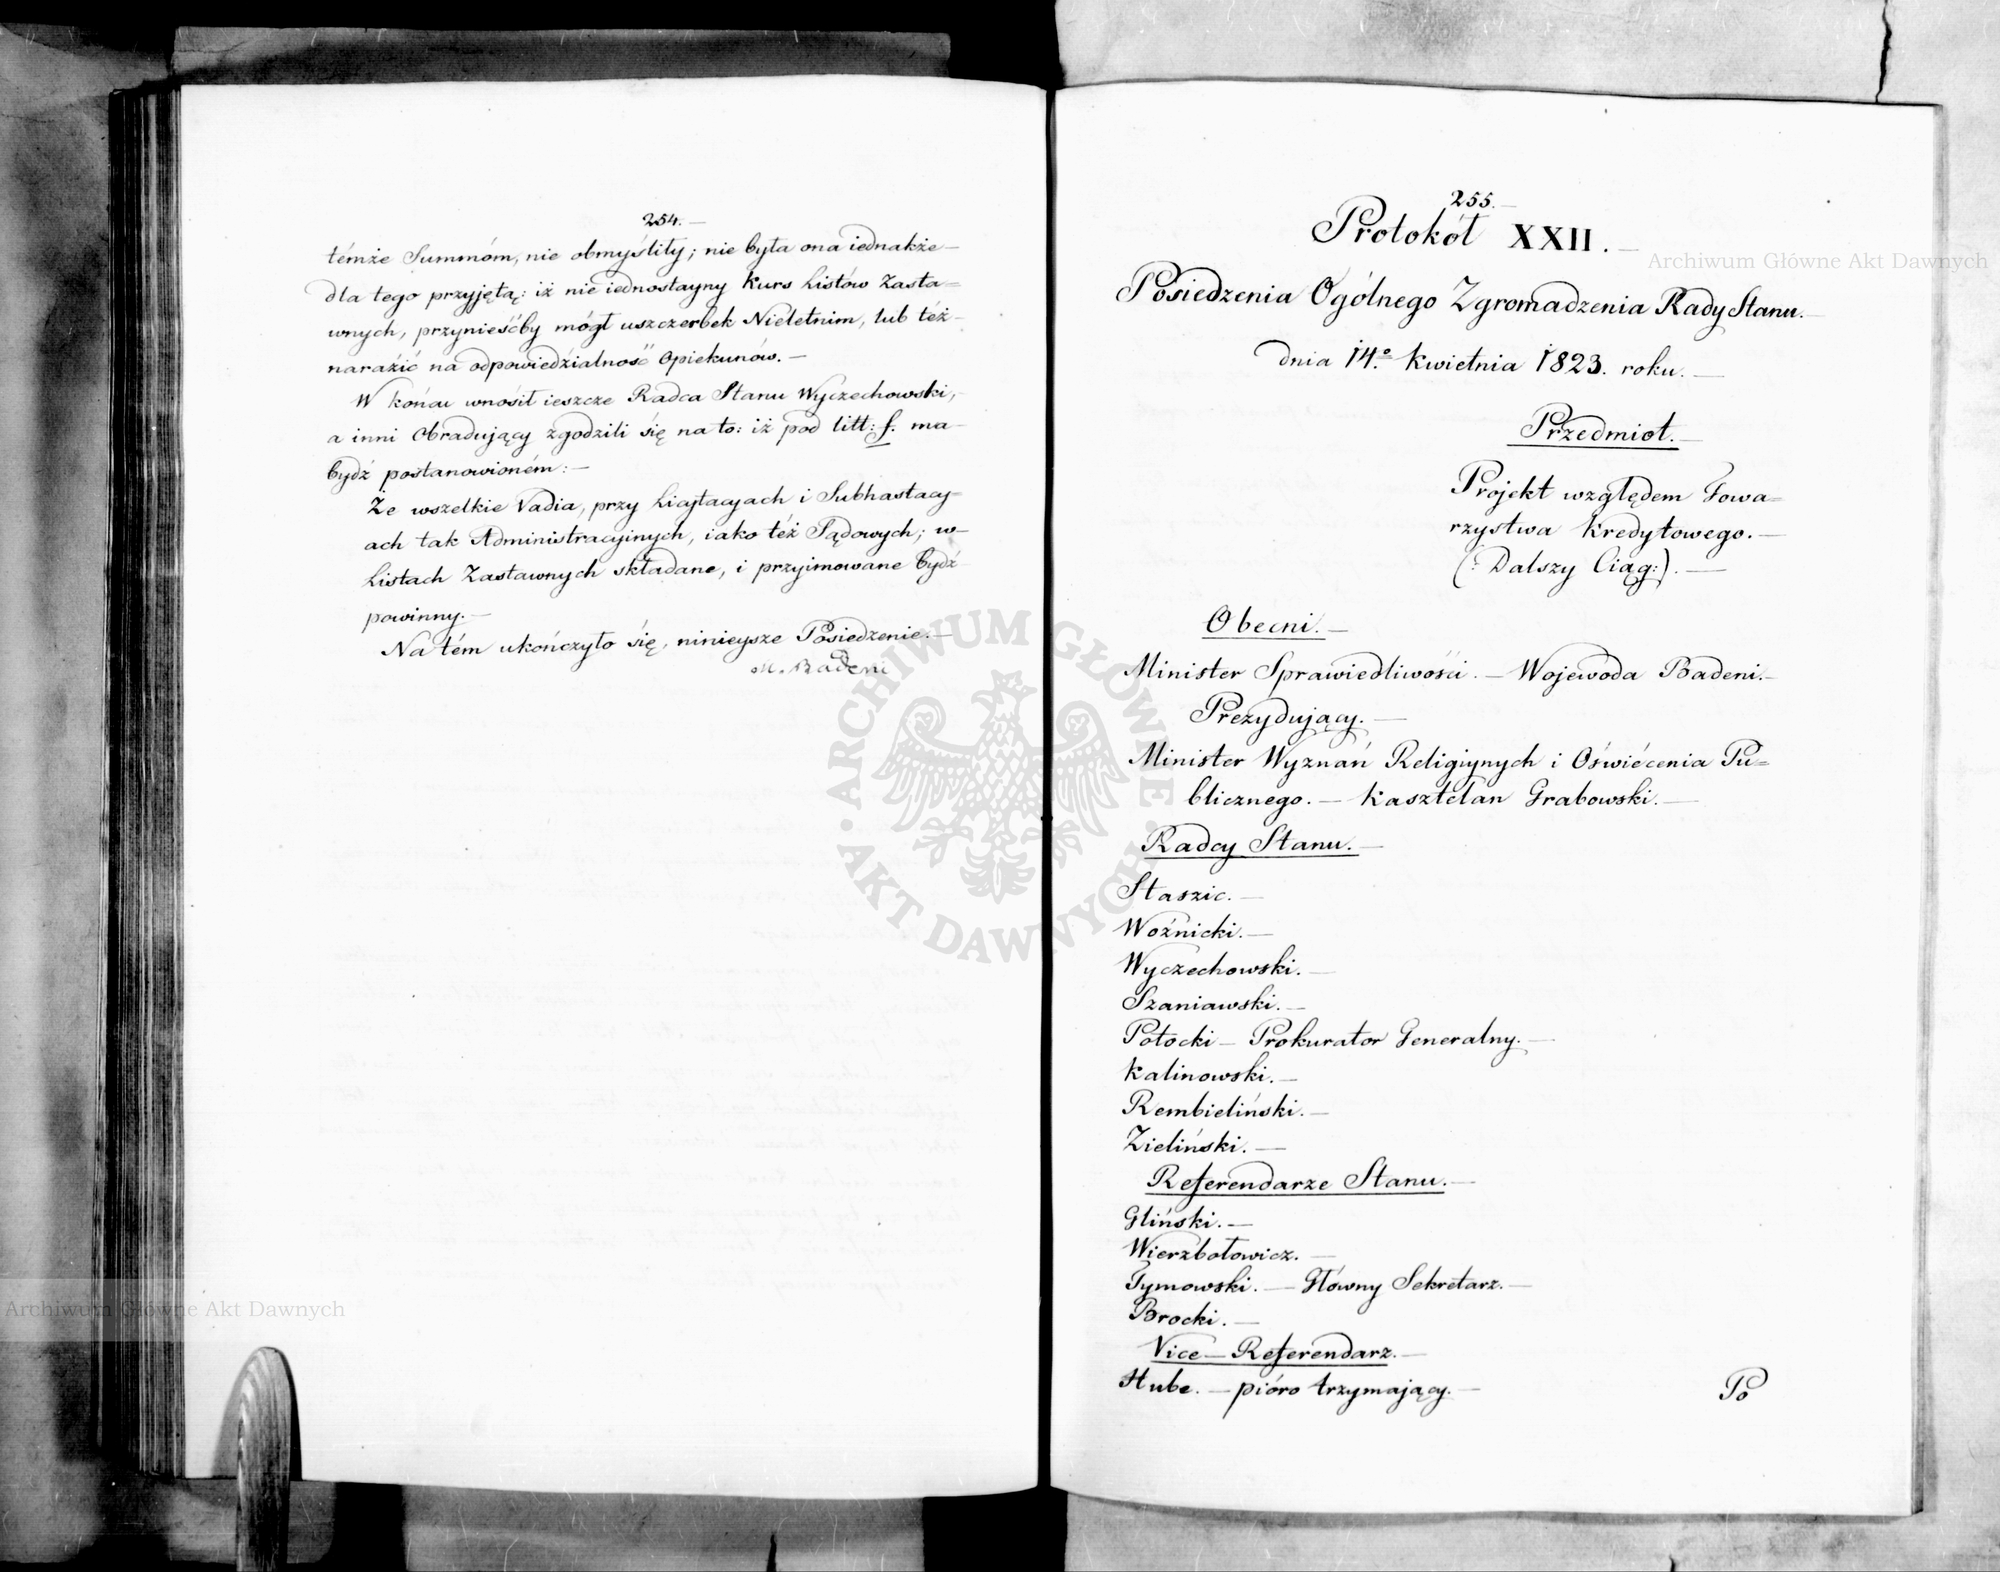 254.—
témże Summóm, nie obmyślity; nie była ona iednakże—
dla tego przyjętą: iż nie iednostayny Kurs Listów Zasta=
wnych, przynieśćby mógł uszczerbek Nieletnim, lub też—
narazić na odpowiedzialność Opiekunów.—
W końcu wnosił ieszcze Radca Stanu Wyczechowski,—
a inni Obradujący zgodzili się na to: iż pod litt: f. ma—
bydź postanowioném:—
Że wszelkie Vadia, przy Licytacyach i Subhastacy=
ach tak Administracyinych, iako też Sądowych; w—
Listach Zastawnych składane, i przyimowane bydź
powinny.—
Na tém ukończyło się, ninieysze Posiedzenie.—
M. Badeni
255.—
Protokół XXII.—
Posiedzenia Ogólnego Zgromadzenia Rady Stanu.—
dnia 14.o Kwietnia 1823. roku.—
Przedmiot.—
Projekt względem Towa=
rzystwa Kredytowego.—
(: Dalszy Ciąg:).—
Obecni.—
Minister Sprawiedliwości.— Wojewoda Badeni.—
Prezydujący.—
Minister Wyznań Religiynych i Oświécenia Pu=
blicznego.— Kasztelan Grabowski.—
Radcy Stanu.—
Staszic.—
Woźnicki.—
Wyczechowski.—
Szaniawski.—
Potocki— Prokurator Generalny.—
Kalinowski.—
Rembieliński.—
Zieliński.—
Referendarze Stanu.—
Gliński.—
Wierzbołowicz.—
Tymowski.— Główny Sekretarz.—
Brocki.—
Vice—Referendarz.—
Hube.— pióro trzymający.—
Po
Archiwum Główne Akt Dawnych
ARCHIWUM GŁÓWNE · AKT DAWNYCH ·
Archiwum Główne Akt Dawnych